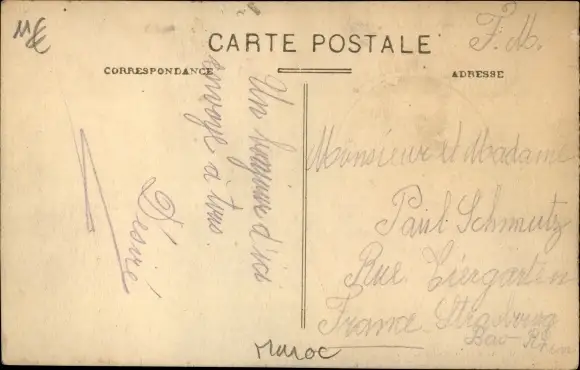 11€
F. M.
CARTE POSTALE
CORRESPONDANCE
ADRESSE
Un bonjour d'ici
envoyé à tous
Désiré
Monsieur et Madame
Paul Schmutz
Rue Tiergarten
France Strasbourg
Bas-Rhin
Maroc